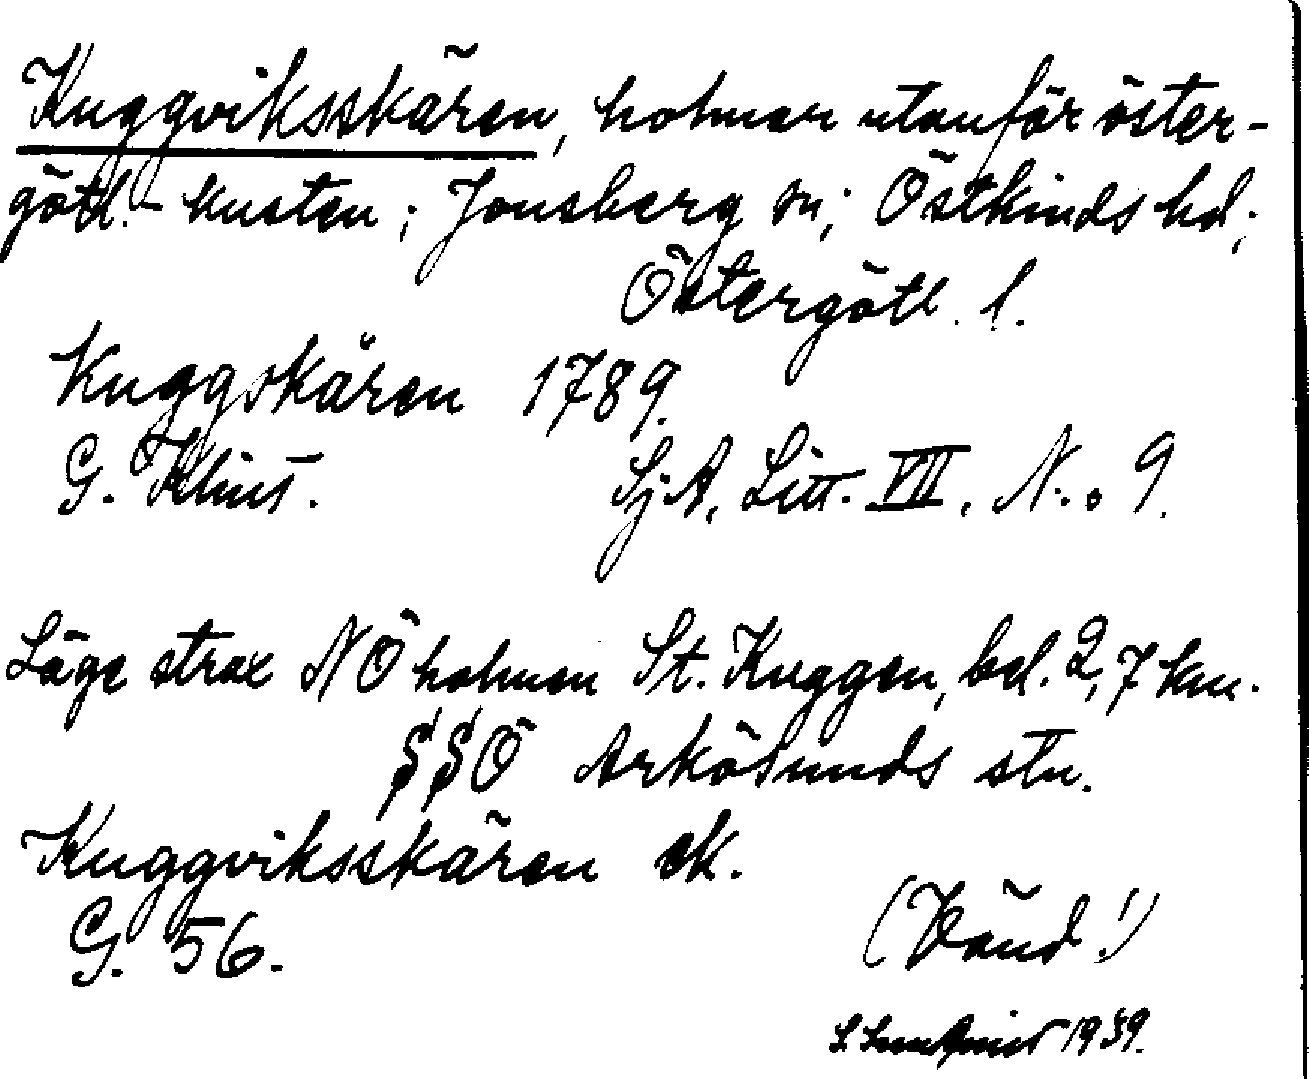 Kuggviksskären, holmar utanför öster-
götl.-kusten; Jonsberg sn; Östkinds hd;
Östergötl. l.
Kuggskären 1789.
G. Klint. Sj.A, Litt. VII. N:o 9.
Läge strax NÖ holmen St. Kuggen, bel. 2,7 km.
SSÖ Arkösunds stn.
Kuggviksskären ek.
G. 56.
(Vänd!)
S. Lundqvist 1939.